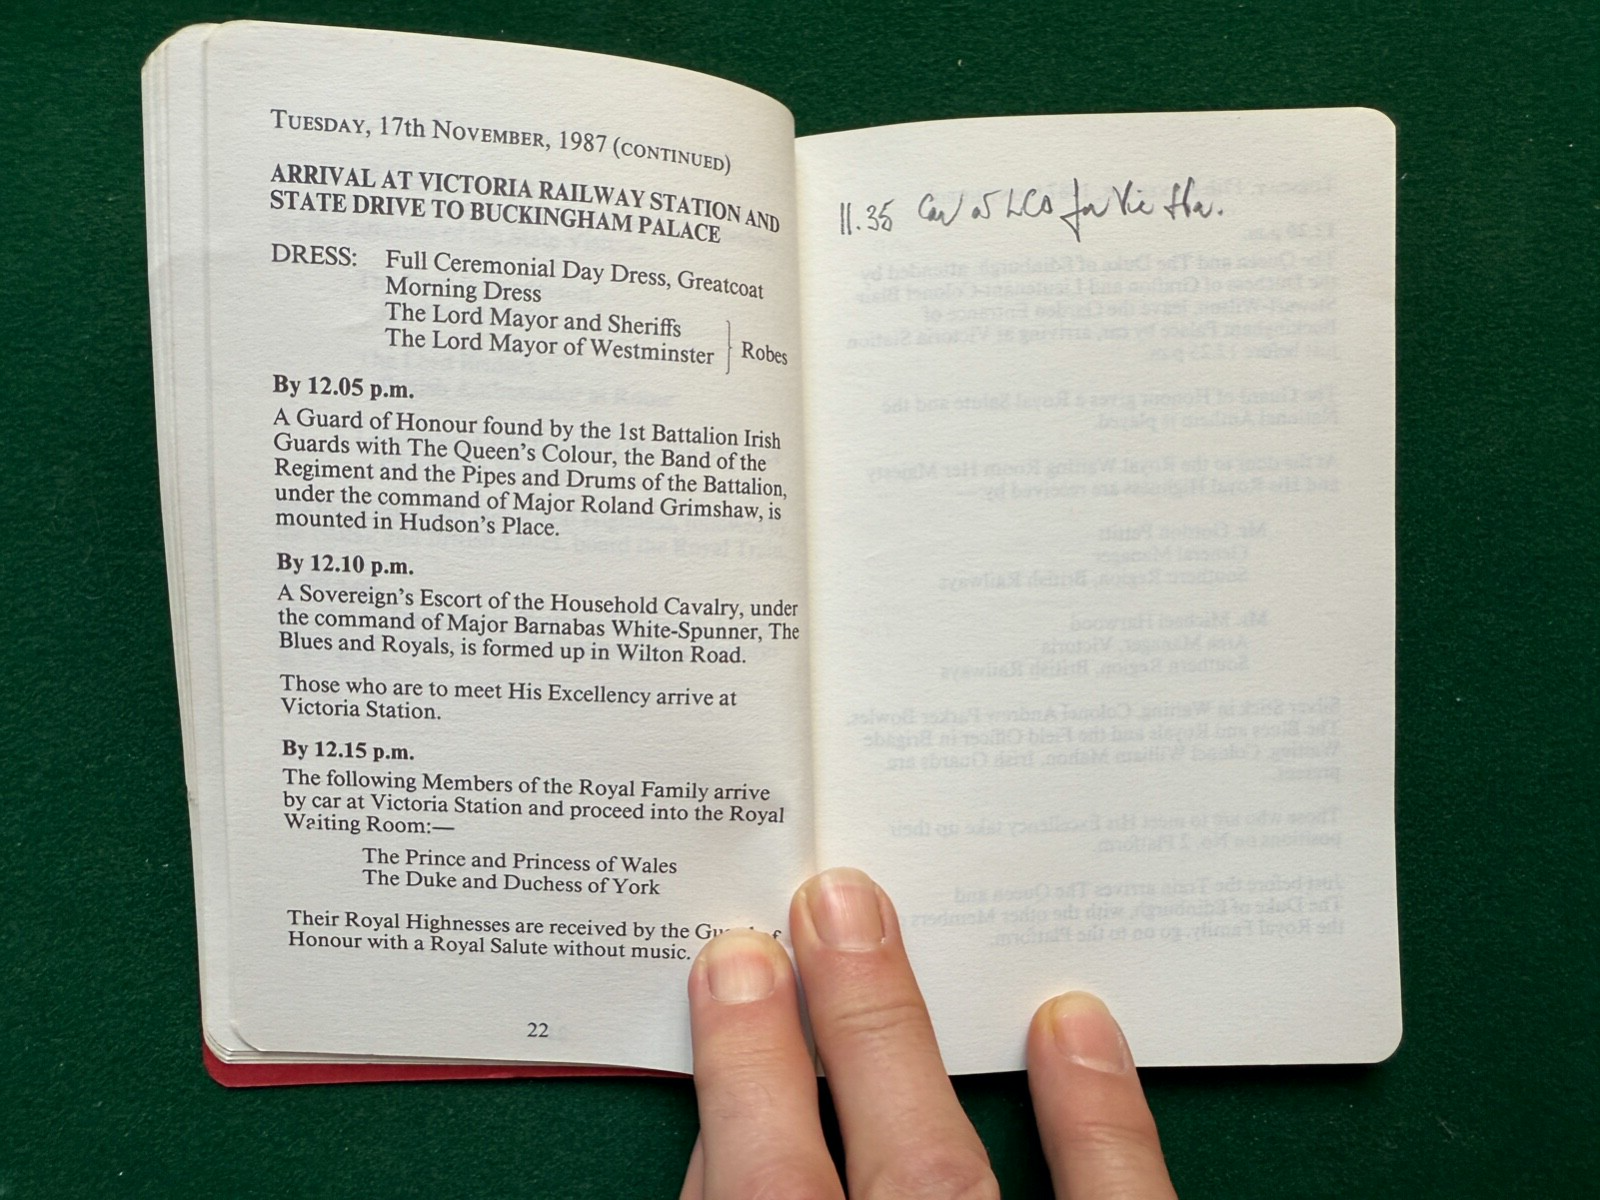 TUESDAY, 17th NOVEMBER, 1987 (CONTINUED)
ARRIVAL AT VICTORIA RAILWAY STATION AND
STATE DRIVE TO BUCKINGHAM PALACE
DRESS: Full Ceremonial Day Dress, Greatcoat
Morning Dress
The Lord Mayor and Sheriffs
The Lord Mayor of Westminster } Robes
By 12.05 p.m.
A Guard of Honour found by the 1st Battalion Irish
Guards with The Queen's Colour, the Band of the
Regiment and the Pipes and Drums of the Battalion,
under the command of Major Roland Grimshaw, is
mounted in Hudson's Place.
By 12.10 p.m.
A Sovereign's Escort of the Household Cavalry, under
the command of Major Barnabas White-Spunner, The
Blues and Royals, is formed up in Wilton Road.
Those who are to meet His Excellency arrive at
Victoria Station.
By 12.15 p.m.
The following Members of the Royal Family arrive
by car at Victoria Station and proceed into the Royal
Waiting Room:—
The Prince and Princess of Wales
The Duke and Duchess of York
Their Royal Highnesses are received by the
Honour with a Royal Salute without music.
22
11.35 Car at LCO for Vic Stn.